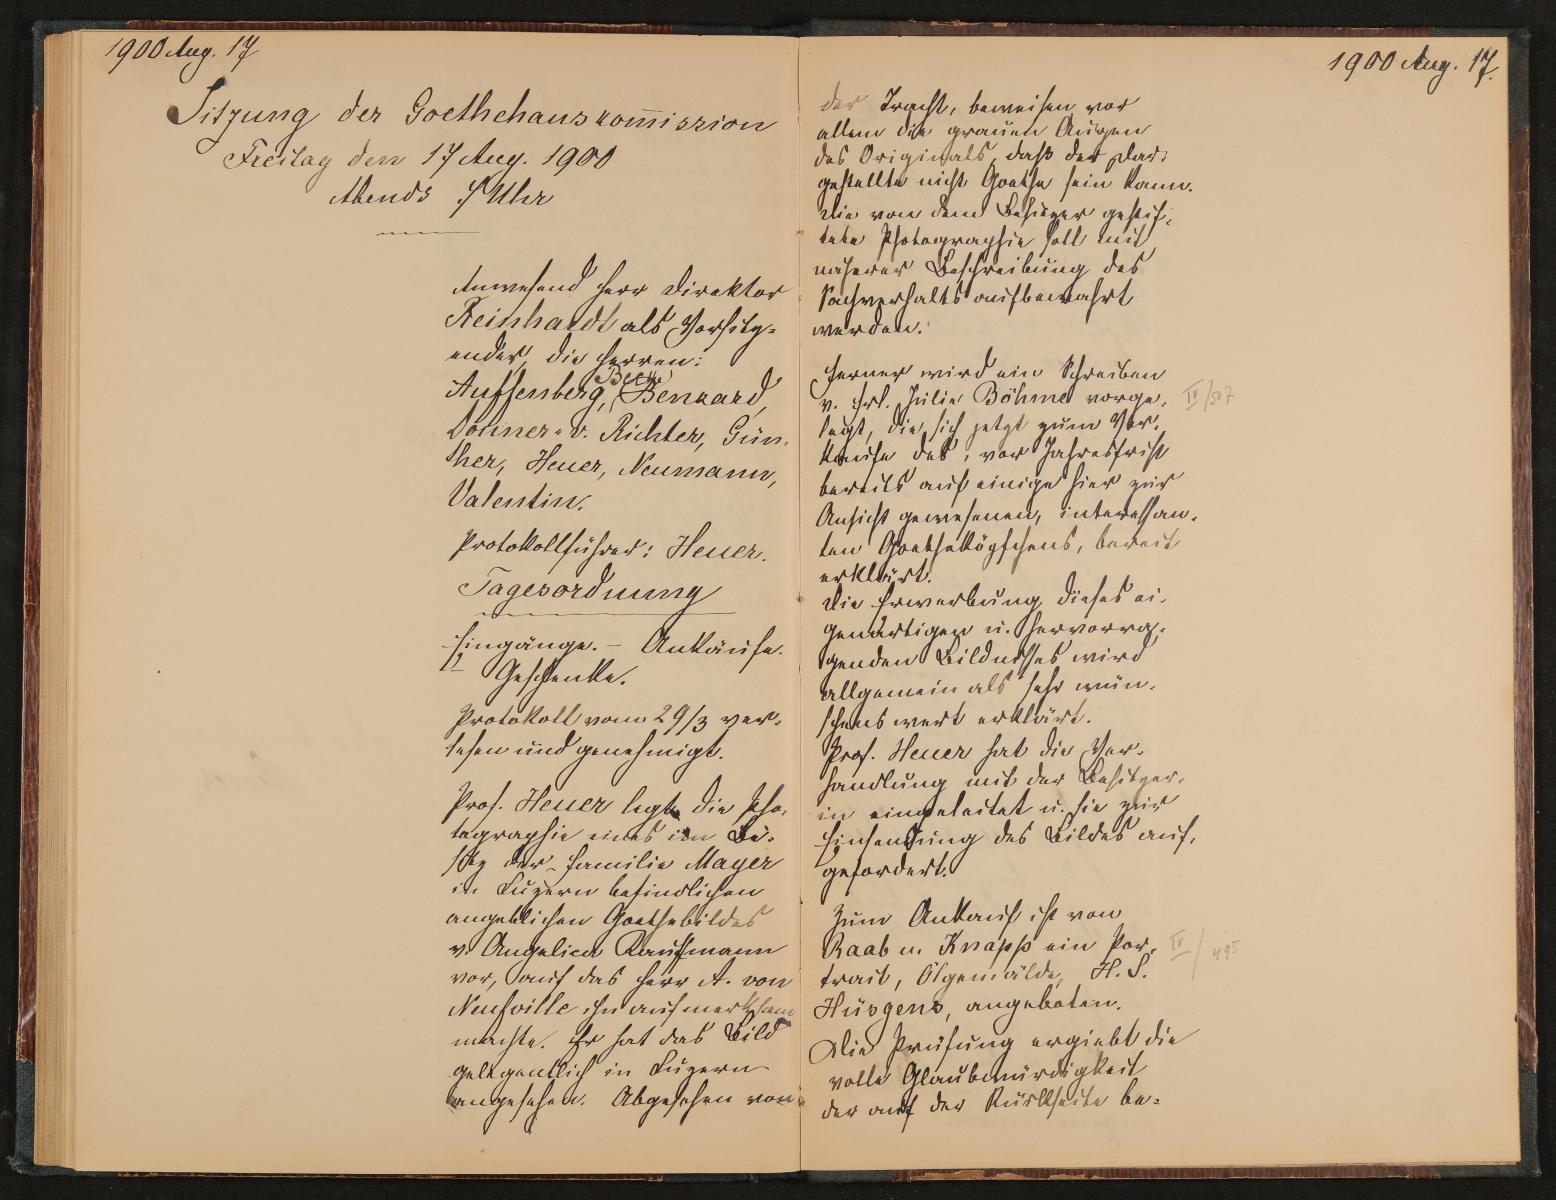 1900 Aug. 17
Sitzung der Goethehauskom̅ission
Freitag den 17 Aug. 1900
Abends Uhr
Anwesend Herr Direktor
Reinhardt als Vorsitz-
ender, die Herren:
Beer
Auffenberg, Benkard,
Donner-v. Richter, Gün-
ther, Heuer, Neumann,
Valentin.
Protokollführer: Heuer.
Tagesordnung
Eingänge. – Ankäufe.
Geschenke.
Protokoll vom 29/3 ver-
lesen und genehmigt.
Prof. Heuer legte die Pho-
tographie eines im Be-
sitz der Familie Mayer
in Luzern befindlichen
angeblichen Goethebildes
v. Angelica Kauffmann
vor, auf das Herr A. von
Neufville ihn aufmerksam
machte. Er hat das Bild
gelegentlich in Luzern
angesehen. Abgesehen von
1900 Aug. 17.
der Tracht, beweisen vor
allem die grauen Augen
des Originals, daß der Dar-
gestellte nicht Goethe sein kann.
Die von dem Besitzer gestif-
tete Photographie soll mit
näherer Beschreibung des
Sachverhalts aufbewahrt
werden.
Ferner wird ein Schreiben
v. Frl. Julie Böhme vorge-
legt, die sich jetzt zum Ver-
kaufe des, vor Jahresfrist
bereits auf einige hier zur
Ansicht gewesenen, interessan-
ten Goetheköpfchens, bereit
erklärt.
IV/507
Die Erwerbung dieses ei-
genartigen u. hervorra-
genden Bildnisses wird
allgemein als sehr wün-
schenswert erklärt.
Prof. Heuer hat die Ver-
handlung mit der Besitzer-
in eingeleitet u. sie zur
Einsendung des Bildes auf-
gefordert.
Zum Ankauf ist von
Raab u. Knapp ein Por-
trait, Ölgemälde, H. S.
Hüsgens, angeboten.
IV/495
Die Prüfung ergiebt die
volle Glaubwürdigkeit
der auf der Rückseite be-